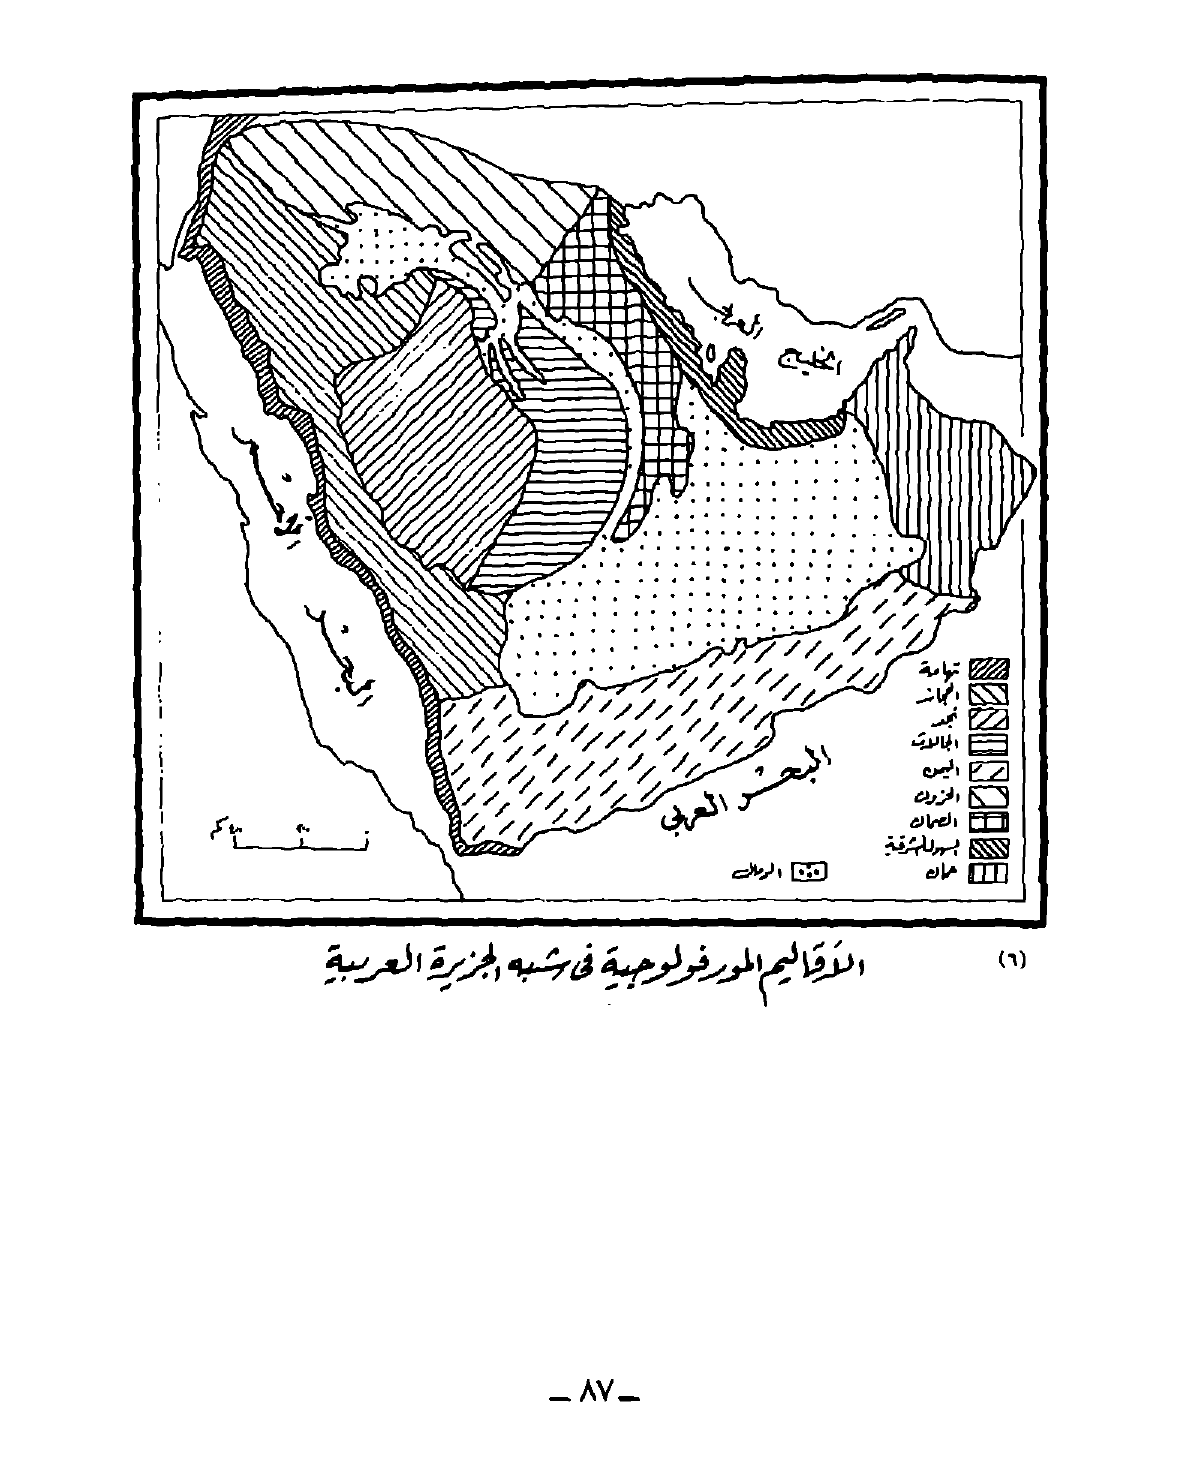 الخليج العربي
البحر الأحمر
البحر العربي
تهامة
الحجاز
نجد
الحافات
اليمن
الحزون
الصمان
السهول الشرقية
عمان
الرمال
٤٠٠ كم ٢٠٠ ٠
(٦) الأقاليم المورفولوجية فى شبه الجزيرة العربية
ـ ٨٧ ـ